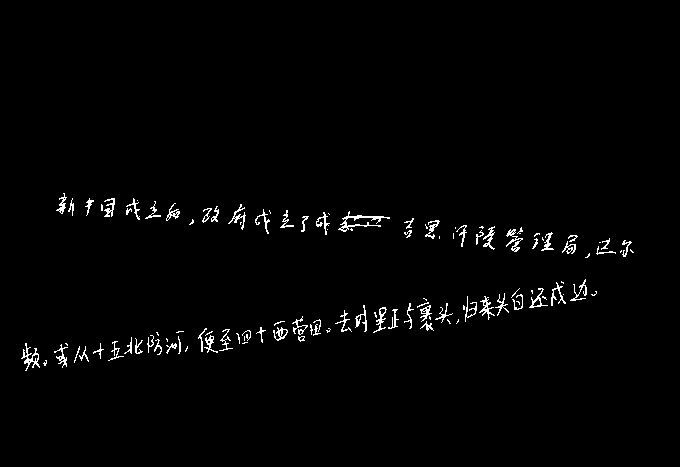 新中国成立后,政府成立了成吉思汗陵管理局,达尔
频。或从十五北防河,便至四十西营田。去时里正与裹头,归来头白还戍边。